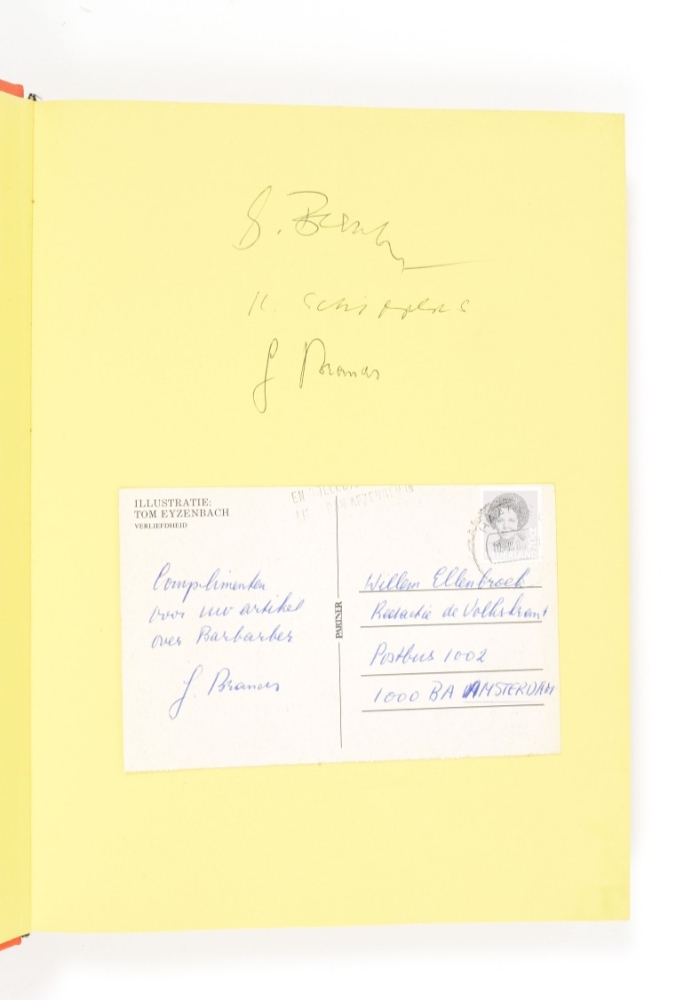 K. Schippers
G Brands
ILLUSTRATIE:
TOM EYZENBACH
VERLIEFDHEID
Complimenten
voor uw artikel
over Barbarber
G. Brands
PARTNER
Willem Ellenbroek
Redactie de Volkskrant
Postbus 1002
1000 BA AMSTERDAM